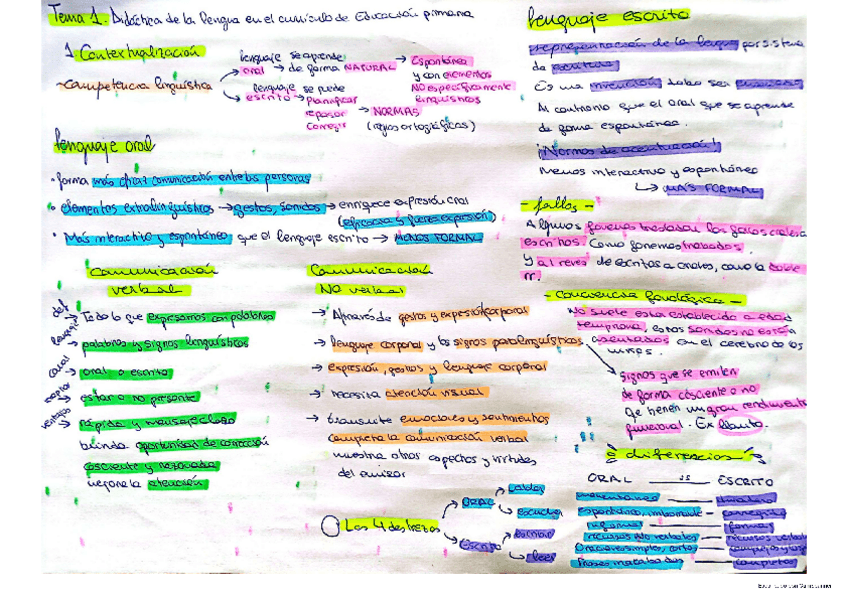 Tema 1. Didáctica de la lengua en el currículo de Educación primaria
1. Contextualización
- Competencia lingüística
lenguaje se aprende
oral → de forma NATURAL → Espontánea
y con elementos
NO específicamente
lingüísticos
lenguaje se puede
escrito → planificar
repasar → NORMAS
corregir (reglas ortográficas)
lenguaje oral
· forma más eficaz comunicación entre las personas
· elementos extralingüísticos → gestos, sonidos → enriquece expresión oral
(refuerza y fuerza expresión)
· Más interactivo y espontáneo que el lenguaje escrito → MENOS FORMAL
Comunicación
verbal
def → Todo lo que expresamos con palabras
lenguaje → palabras y signos lingüísticos
canal → oral o escrito
→ estar o no presente
ventajas → rápida y mensaje claro
brinda oportunidad de corrección
cosciente y razonada
mejora la atención
Comunicación
No verbal
→ A través de gestos y expresión corporal
→ lenguaje corporal y los signos paralingüísticos
→ expresión, gestos y lenguaje corporal
→ necesita atención visual
→ transmite emociones y sentimientos
completa la comunicación verbal
muestra otros aspectos y virtudes
del emisor
Signos que se emiten
de forma cosciente o no
Qe tienen un gran rendimiento
funcional. Ex llanto.
Las 4 destrezas
ORAL
hablar
escuchar
Escrito
escribir
leer
lenguaje escrito
representación de la lengua por sistema
de escritura
Es una invención, debe ser enseñado
Al contrario que el oral que se aprende
de forma espontánea.
¡Normas de acentuación!
Menos interactivo y espontáneo
↳ MÁS FORMAL
- fallos -
Algunos fonemas trasladan los fallos orales a
escritos. Como fonemas trabados.
Y al revés de escritos a orales, como la doble
rr.
- Conciencia fonológica -
No suele estar establecido a edad
temprana, estos sonidos no están
asentados en el cerebro de los
niños.
diferencias
ORAL ESCRITO
espontáneo, — corregido
informal — formal
recursos no verbales — recursos verbales
Oraciones simples, cortas — complejas y largas
frases inacabadas — completas